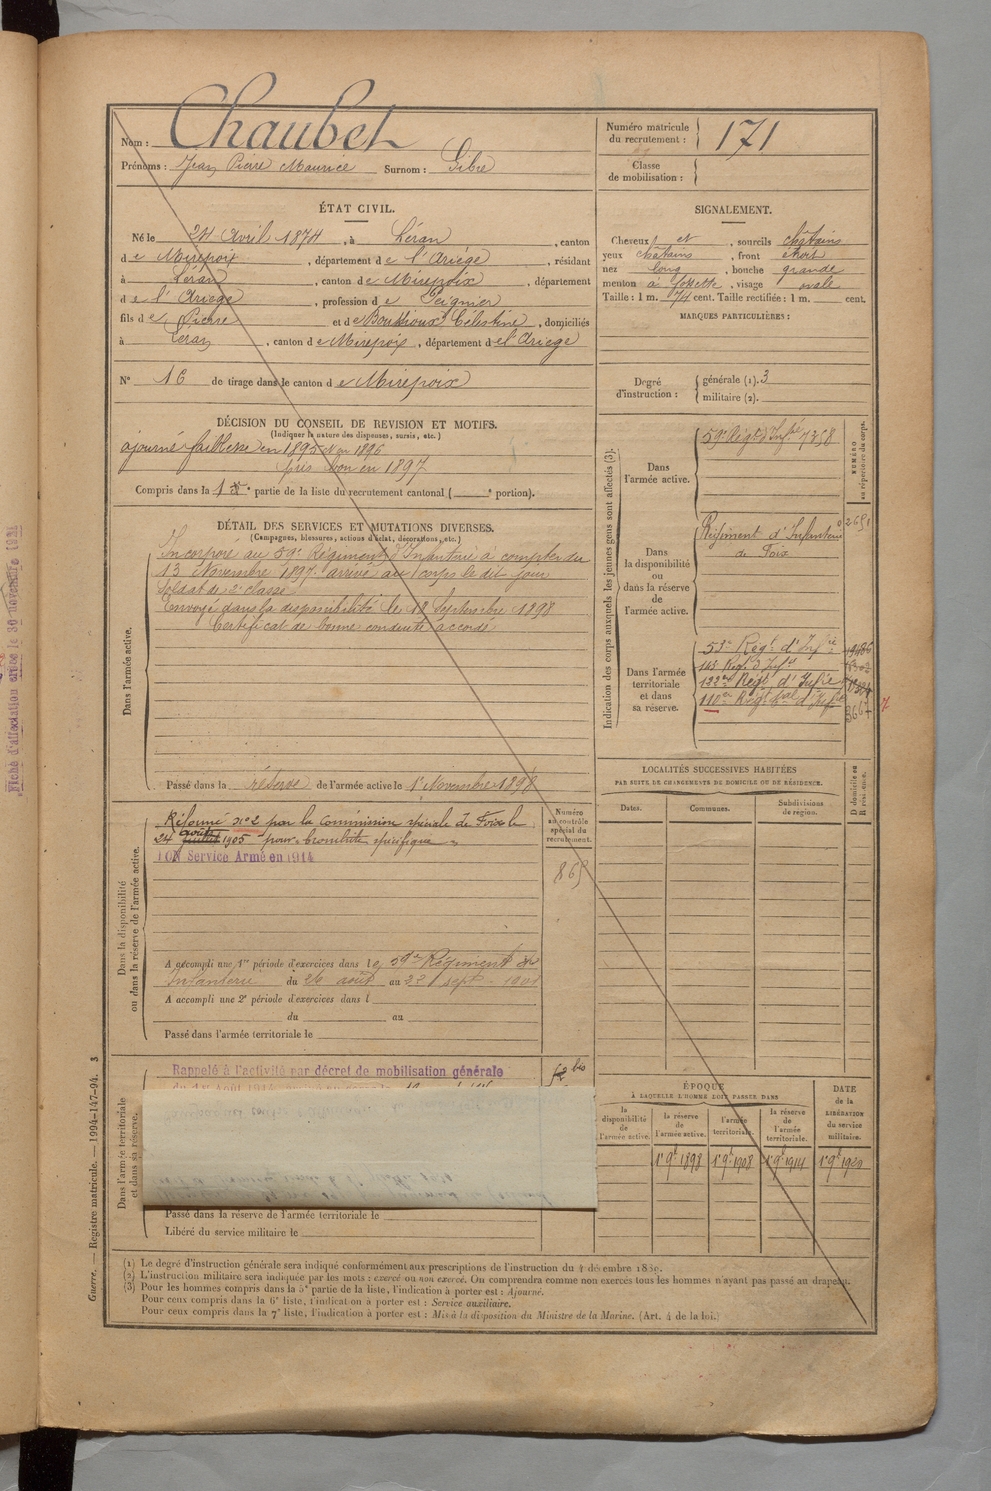 Nom : Chaubet
Prénoms : Jean Pierre Maurice Surnom : Libre
Numéro matricule du recrutement : 171
Classe de mobilisation :
ÉTAT CIVIL.
Né le 24 Avril 1874, à Léran, canton
de Mirepoix, département de l'Ariège, résidant
à Léran, canton de Mirepoix, département
de l'Ariège, profession de Peignier
fils de Pierre et de Boussioux Célestine, domiciliés
à Léran, canton de Mirepoix, département de l'Ariège
N° 16 de tirage dans le canton de Mirepoix
SIGNALEMENT.
Cheveux et, sourcils châtains
yeux châtains, front étroit
nez long, bouche grande
menton à fossette, visage ovale
Taille : 1 m. 74 cent. Taille rectifiée : 1 m. cent.
MARQUES PARTICULIÈRES :
Degré d'instruction : générale (1). 3
militaire (2).
DÉCISION DU CONSEIL DE REVISION ET MOTIFS.
(Indiquer la nature des dispenses, sursis, etc.)
ajourné faiblesse en 1895 1896
pris bon en 1897
Compris dans la 1e partie de la liste du recrutement cantonal ( e portion).
DÉTAIL DES SERVICES ET MUTATIONS DIVERSES.
(Campagnes, blessures, actions d'éclat, décorations, etc.)
Dans l'armée active.
Incorporé au 59e Régiment d'Infanterie à compter du
13 Novembre 1897. arrivé au corps le dit jour
Soldat de 2e classe
Envoyé dans la disponibilité le 18 Septembre 1898
Certificat de bonne conduite accordé
Passé dans la réserve de l'armée active le 1er Novembre 1898
Indication des corps auxquels les jeunes gens sont affectés (3).
NUMÉRO au répertoire du corps.
Dans l'armée active.
59e Régt d'Infie 7358
Dans la disponibilité ou dans la réserve de l'armée active.
Régiment d'Infanterie
de Foix
Dans l'armée territoriale et dans sa réserve.
53e Régt d'Infie
145 Régt d'Infie
122e Régt d'Infie
110e Régt d'Infie
LOCALITÉS SUCCESSIVES HABITÉES
PAR SUITE DE CHANGEMENTS DE DOMICILE OU DE RÉSIDENCE.
D domicile ou R résidence.
Dates. Communes. Subdivisions de région.
Dans la disponibilité ou dans la réserve de l'armée active.
Numéro au contrôle spécial du recrutement.
865
Réformé n° 2 par la Commission spéciale de Foix le
24 août 1905 pour
BON Service Armé en 1914
A accompli une 1re période d'exercices dans le 59e Régiment d'
Infanterie du 26 août au 22 sept. 1901
A accompli une 2e période d'exercices dans l
du au
Passé dans l'armée territoriale le
Dans l'armée territoriale et dans sa réserve.
Rappelé à l'activité par décret de mobilisation générale
Passé dans la réserve de l'armée territoriale le
Libéré du service militaire le
ÉPOQUE
À LAQUELLE L'HOMME DOIT PASSER DANS
la disponibilité de l'armée active.
la réserve de l'armée active.
l'armée territoriale.
la réserve de l'armée territoriale.
DATE de la LIBÉRATION du service militaire.
1er 9bre 1898 1er 9bre 1908 1er 9bre 1914 1er 9bre 1920
(1) Le degré d'instruction générale sera indiqué conformément aux prescriptions de l'instruction du 4 décembre 1889.
(2) L'instruction militaire sera indiquée par les mots : exercé ou non exercé. On comprendra comme non exercés tous les hommes n'ayant pas passé au drapeau.
(3) Pour les hommes compris dans la 5e partie de la liste, l'indication à porter est : Ajourné.
Pour ceux compris dans la 6e liste, l'indication à porter est : Service auxiliaire.
Pour ceux compris dans la 7e liste, l'indication à porter est : Mis à la disposition du Ministre de la Marine. (Art. 4 de la loi.)
Guerre. — Registre matricule. — 1994-147-94. 3
Fiche d'affectation créée le 30 novembre 1921